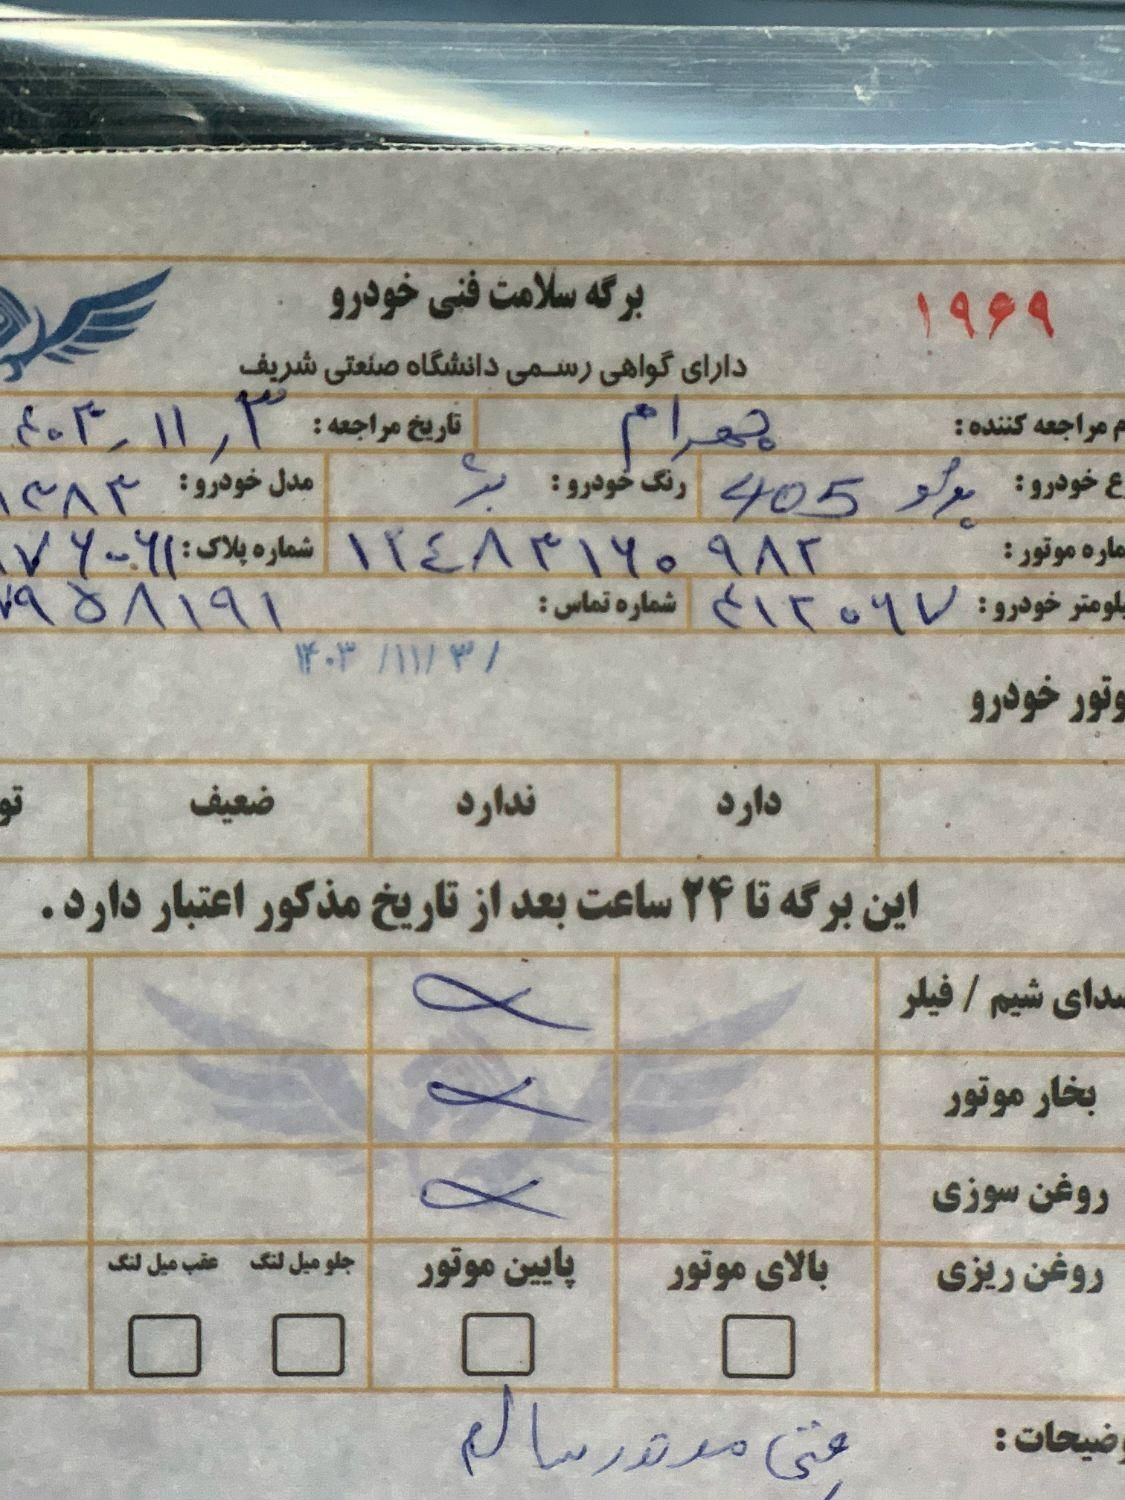 برگه سلامت فنی خودرو
۱۹۶۹
دارای گواهی رسمی دانشگاه صنعتی شریف
م مراجعه کننده : بهرام
تاریخ مراجعه : ۴۰۳٫۱۱٫۳
ع خودرو : پژو 405
رنگ خودرو : بژ
مدل خودرو : ۱۳۸۳
ماره موتور : ۱۲۴۸۳۱۶۰۹۸۲
شماره پلاک :
یلومتر خودرو : ۴۱۲۰۶۷
شماره تماس : ۷۹۵۸۱۹۱
۱۴۰۳ /۱۱/ ۳ /
وتور خودرو
دارد
ندارد
ضعیف
تو
این برگه تا ۲۴ ساعت بعد از تاریخ مذکور اعتبار دارد .
صدای شیم / فیلر
بخار موتور
روغن سوزی
روغن ریزی
بالای موتور
پایین موتور
جلو میل لنگ
عقب میل لنگ
وضیحات : فنی موتور سالم